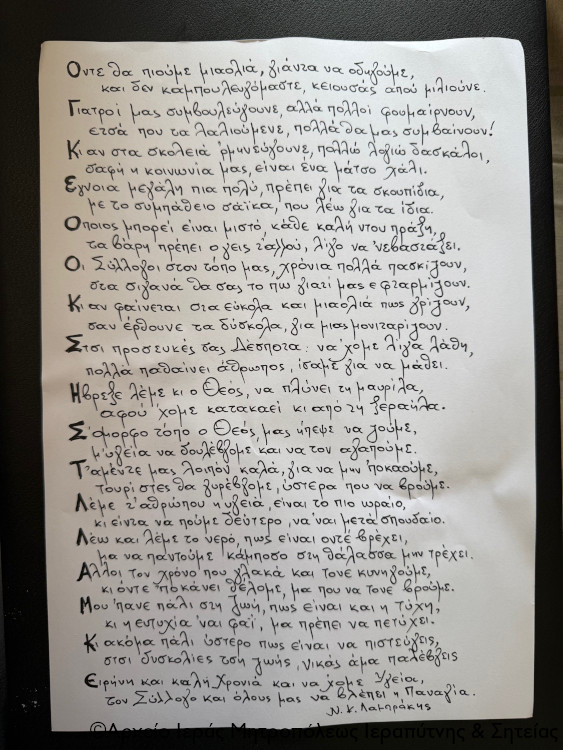 Οντε θα πιούμε μιαολιά, γιάντα να οδηγούμε,
και δεν καμπουλευγόμαστε, κειουσάς απού μιλιούνε.
Γιατροί μας συμβουλεύγουνε, αλλά πολλοί φουμαίρνουν,
ετσά που τα λαλιούμενε, πολλά θα μας συμβαίνουν!
Κι αν στα σκολειά ορμηνεύγουνε, πολλώ λογιώ δασκάλοι,
σαφή η κοινωνία μας, είναι ένα μάτσο χάλι.
Εγνοια μεγάλη πια πολύ, πρέπει για τα σκουπίδια,
με το συμπάθειο σάικα, που λέω για τα ίδια.
Οποιος μπορεί είναι μιστό, κάθε καλή ντου πράξη,
τα βάρη πρέπει ο γεις τ'αλλού, λίγο να 'νεβαστάξει.
Οι Σύλλογοι στον τόπο μας, χρόνια πολλά πασκίζουν,
στα σιγανά θα σας το πω γιατί μας εφταρμίζουν.
Κι αν φαίνεται στα εύκολα και μιαολιά πως γρίζουν,
σαν έρθουνε τα δύσκολα, για μιας μονιταρίζουν.
Στσι προσευκές σας Δέσποτα. να 'χομε λίγ'α λάθη,
πολλά παθαίνει άθρωπος, ίσαμε για να μάθει.
Ηβρεξε λέμε κι ο Θεός, να πλύνει τη μαυρίλα,
αφού 'χομε κατακαεί κι από τη ξεραήλα.
Σ'όμορφο τόπο ο Θεός, μας ήπεψε να ζούμε,
μ'υγεία να δουλέβγομε και να τον αγαπούμε.
Τ'αμέντε μας λοιπόν καλά, για να μην 'ποκαούμε,
τουρίστες θα γυρέβγομε, ύστερα που να βρούμε.
Λέμε τ'αθρώπου η υγειά, είναι το πιο ωραίο,
κι είντα να πούμε δεύτερο, να 'ναι μετά σπουδαίο.
Λέω και λέμε το νερό, πως είναι οντε βρέχει,
μα να παντούμε κάμποσο στη θάλασσα μην τρέχει.
Αλλοι τον χρόνο που γλακά και τονε κυνηγούμε,
κι όντε 'ποκάνει θέλομε, μα που να τονε βρούμε.
Μου 'πανε πάλι στη ζωή, πως είναι και η τύχη,
κι η ευτυχία 'ναι φαϊ, μα πρέπει να πετύχει.
Κι ακόμα πάλι ύστερο πως είναι να πιστεύγεις,
στσι δυσκολίες τση ζωής, νικάς άμα παλέβγεις
Ειρήνη και καλή χρονιά και να 'χομε Υγεία,
τον Σύλλογο και όλους μας να βλέπει η Παναγία.
Ν. Κ. Λαμπράκης
©Αρχείο Ιεράς Μητροπόλεως Ιεραπύτνης & Σητείας